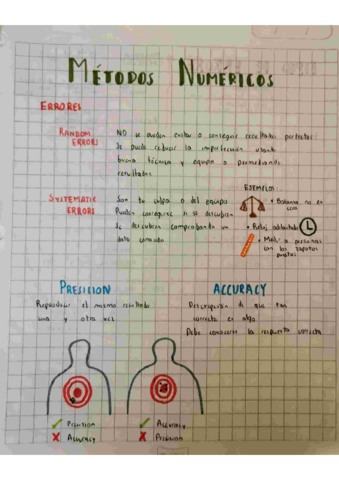 MÉTODOS NUMÉRICOS
ERRORES
RANDOM
ERRORS
NO se pueden evitar o conseguir resultados perfectos
Se puede reducir la imperfección usando
buena técnica y equipo o promediando
resultados
SYSTEMATIC
ERRORS
Son tu culpa o del equipo
Pueden corregirse si se descubren
Se descubren comprobando un
dato conocido
EJEMPLO:
• Balanza no en
cero
• Reloj adelantado
• Medir a personas
con los zapatos
puestos
PRESICION
Reproducir el mismo resultado
una y otra vez
ACCURACY
Descripción de que tan
correcto es algo
Debe conocerse la respuesta correcta
✓ Presition
✗ Accuracy
✓ Accuracy
✗ Presition